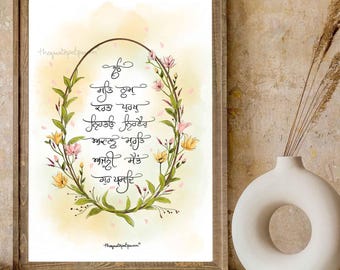 ੴ
ਸਤਿ ਨਾਮੁ
ਕਰਤਾ ਪੁਰਖੁ
ਨਿਰਭਉ ਨਿਰਵੈਰੁ
ਅਕਾਲ ਮੂਰਤਿ
ਅਜੂਨੀ ਸੈਭੰ
ਗੁਰ ਪ੍ਰਸਾਦਿ